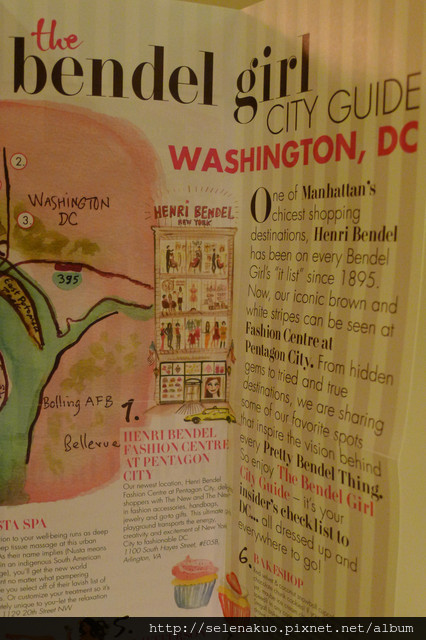 the
bendel girl
CITY GUIDE
WASHINGTON, DC
2.
WASHINGTON
DC
3
395
East Potomac
Bolling AFB
Bellevue
HENRI BENDEL
NEW YORK
One of Manhattan's
chicest shopping
destinations, Henri Bendel
has been on every Bendel
Girl's "it list" since 1895.
Now, our iconic brown and
white stripes can be seen at
Fashion Centre at
Pentagon City. From hidden
gems to tried and true
destinations, we are sharing
some of our favorite spots
that inspire the vision behind
every Pretty Bendel Thing.
So enjoy The Bendel Girl
City Guide – it's your
insider's check list to
DC... all dressed up and
everywhere to go!
1.
HENRI BENDEL
FASHION CENTRE
AT PENTAGON
CITY
Our newest location, Henri Bendel
Fashion Centre at Pentagon City,
shoppers with The New and The New
in fashion accessories, handbags,
jewelry and gifts. This ultimate
playground transports the energy,
creativity and excitement of New York
City to fashionable DC.
1100 South Hayes Street, #E05B,
Arlington, VA
STA SPA
tion to your well-being runs as deep
ep tissue massage at this urban
their name implies (Nusta means
in an indigenous South American
you'll get the new world
nt no matter what pampering
you select off of their lavish list of
Or customize your treatment so it's
ely unique to you–let the relaxation
1129 20th Street NW
6.
BAKESHOP
5.
http://selenakuo.pixnet.net/album